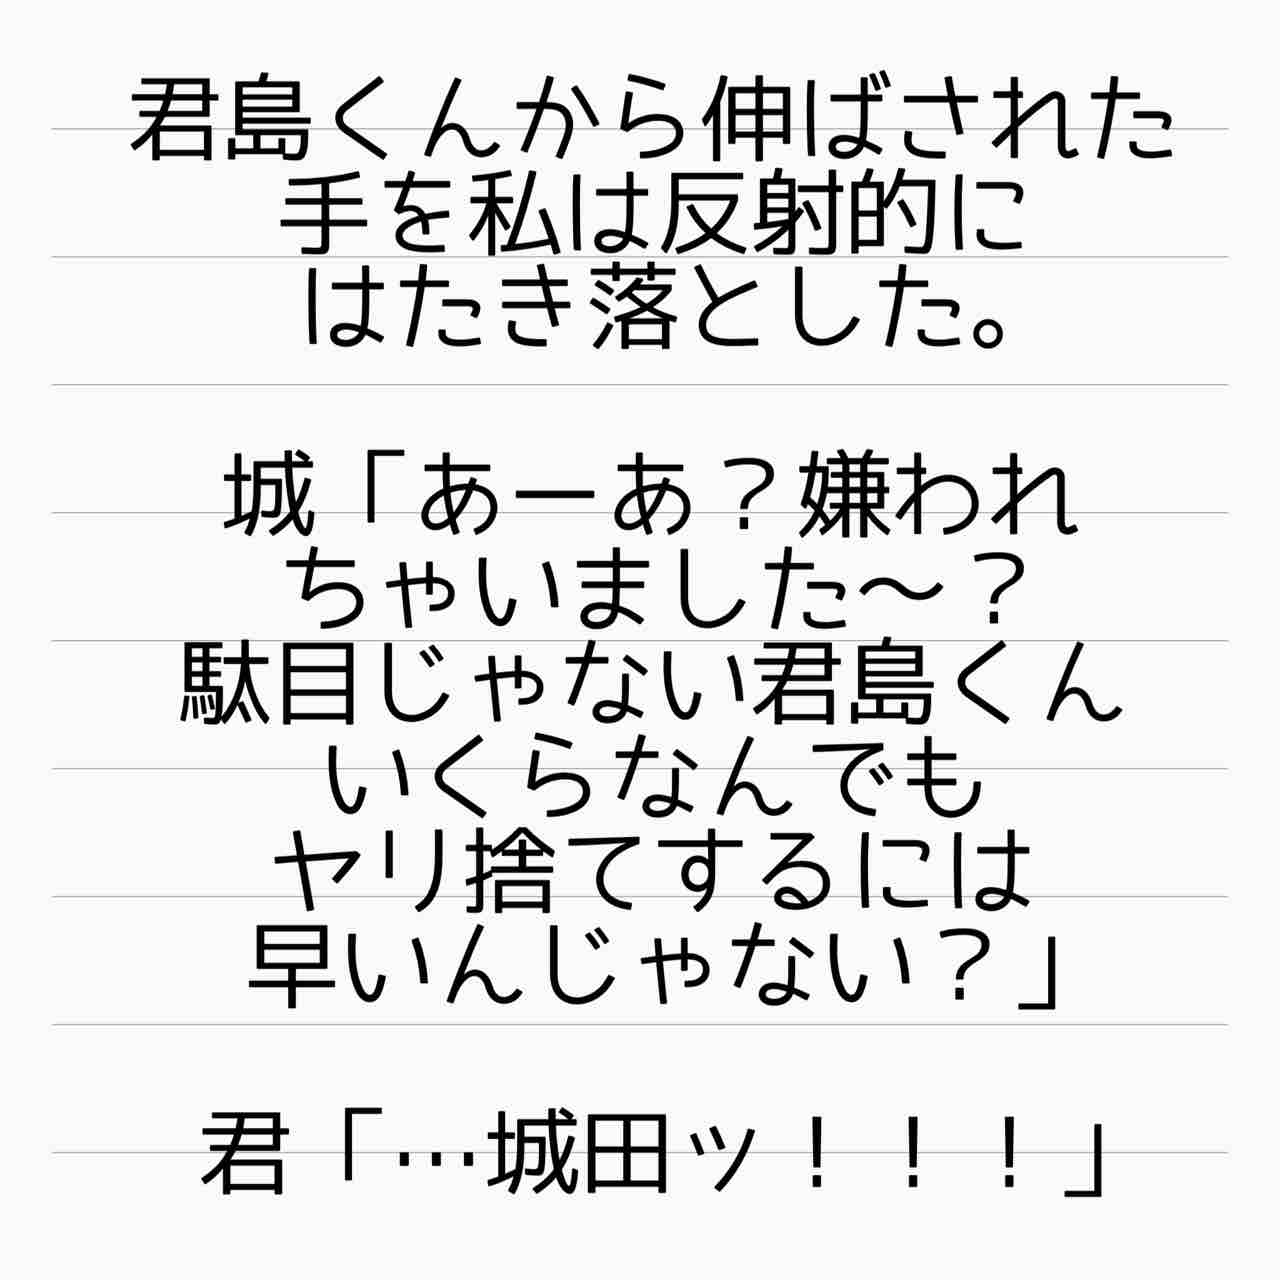 君島くんから伸ばされた
手を私は反射的に
はたき落とした。
城「あーあ？嫌われ
ちゃいました～？
駄目じゃない君島くん
いくらなんでも
ヤリ捨てするには
早いんじゃない？」
君「…城田ッ！！！」